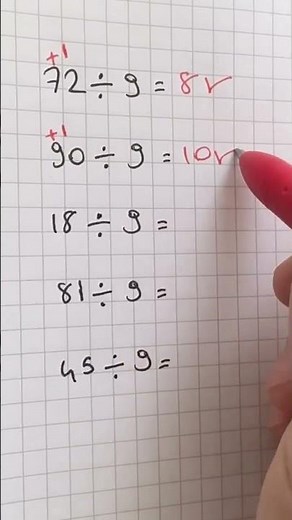 +1
72 ÷ 9 = 8✓
+1
90 ÷ 9 = 10✓
18 ÷ 9 =
81 ÷ 9 =
45 ÷ 9 =